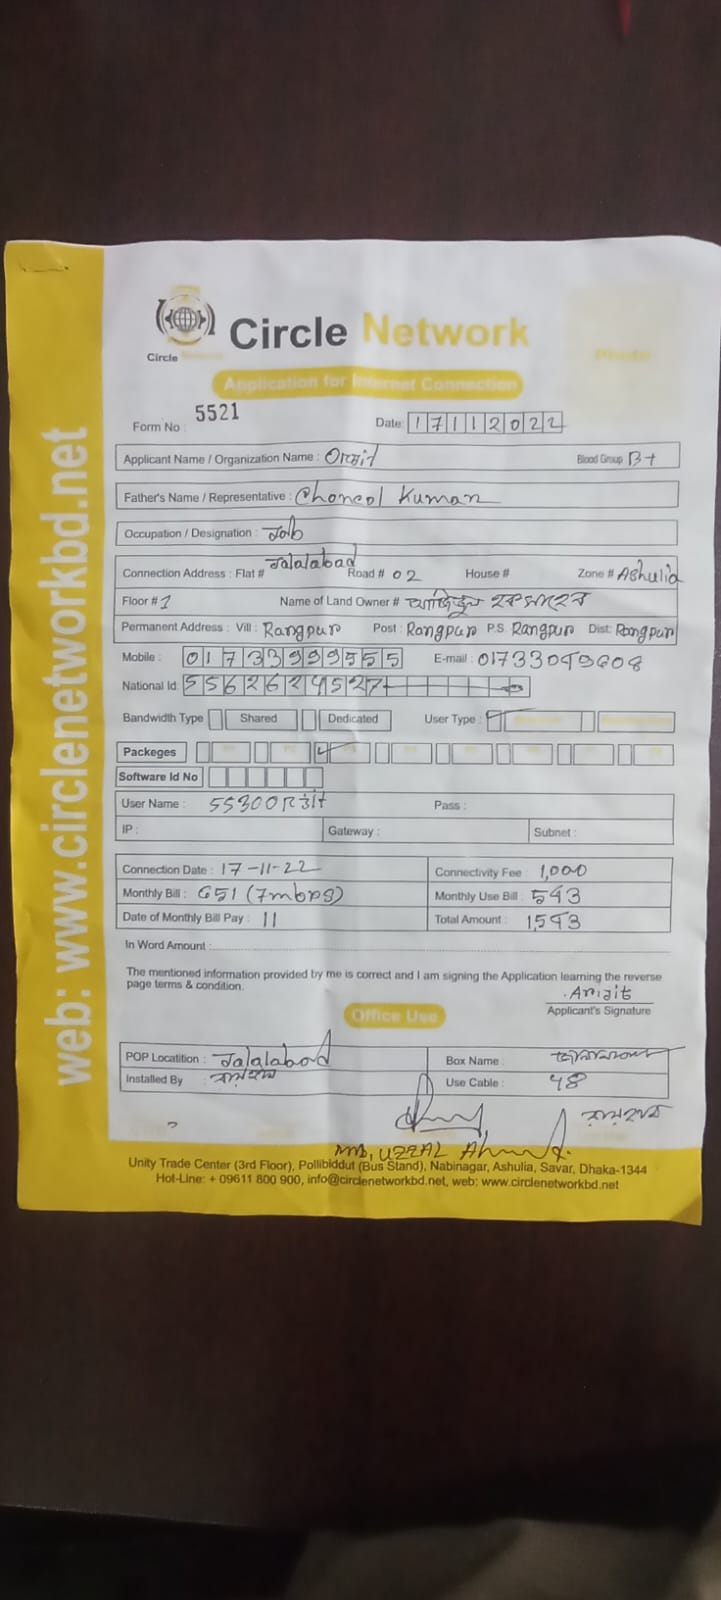 Circle Network
Circle Network
Application for Internet Connection
Photo
Form No : 5521
Date: 17112022
Applicant Name / Organization Name :
Blood Group B+
Father's Name / Representative : Choncol Kuman
Occupation / Designation : Job
Connection Address : Flat # Jalalabad Road # 02 House # Zone # Ashulia
Floor # 1 Name of Land Owner #
Permanent Address : Vill : Rangpur Post : Rangpur P.S Rangpur Dist: Rangpur
Mobile : 01733999955 E-mail : 01733049608
National Id: 5562624527
Bandwidth Type Shared Dedicated User Type :
Packeges
Software Id No
User Name : Pass :
IP : Gateway : Subnet :
Connection Date : 17-11-22 Connectivity Fee : 1,000
Monthly Bill : 651 (7mbps) Monthly Use Bill : 543
Date of Monthly Bill Pay : 11 Total Amount : 1,543
In Word Amount :
The mentioned information provided by me is correct and I am signing the Application learning the reverse
page terms & condition.
Applicant's Signature
Office Use
POP Locatition : Jalalabad Box Name :
Installed By : Use Cable : 48
MD, UZZAL Ahmed.
Unity Trade Center (3rd Floor), Pollibiddut (Bus Stand), Nabinagar, Ashulia, Savar, Dhaka-1344
Hot-Line: + 09611 800 900, info@circlenetworkbd.net, web: www.circlenetworkbd.net
web: www.circlenetworkbd.net